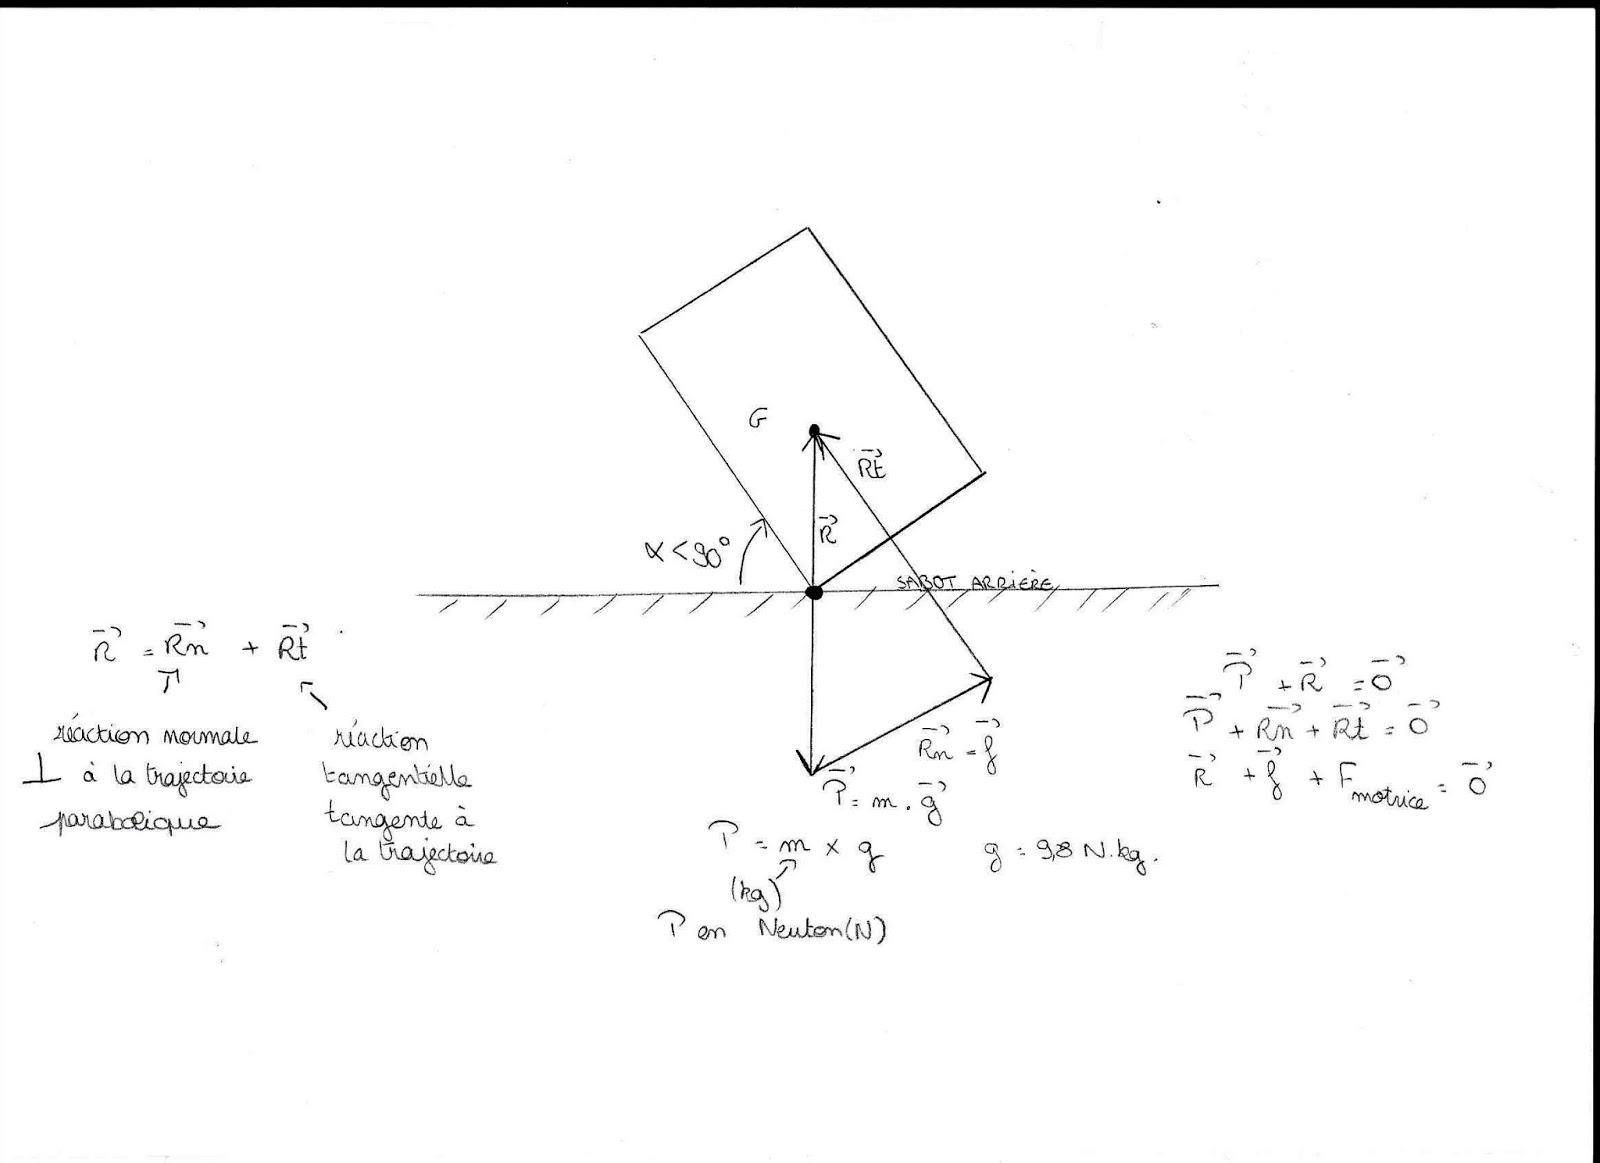 G
R⃗t
R⃗
α < 90°
SABOT ARRIÈRE
R⃗ = R⃗n + R⃗t
réaction normale
⊥ à la trajectoire
parabolique
réaction
tangentielle
tangente à
la trajectoire
R⃗n = f⃗
P⃗ = m . g⃗
P = m x g
(kg)
P en Neuton (N)
g = 9,8 N.kg.
P⃗ + R⃗ = 0⃗
P⃗ + R⃗n + R⃗t = 0⃗
R⃗ + f⃗ + F motrice = 0⃗